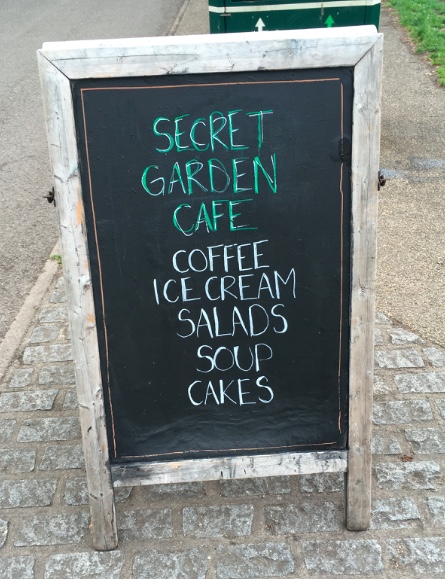 SECRET
GARDEN
CAFE
COFFEE
ICE CREAM
SALADS
SOUP
CAKES